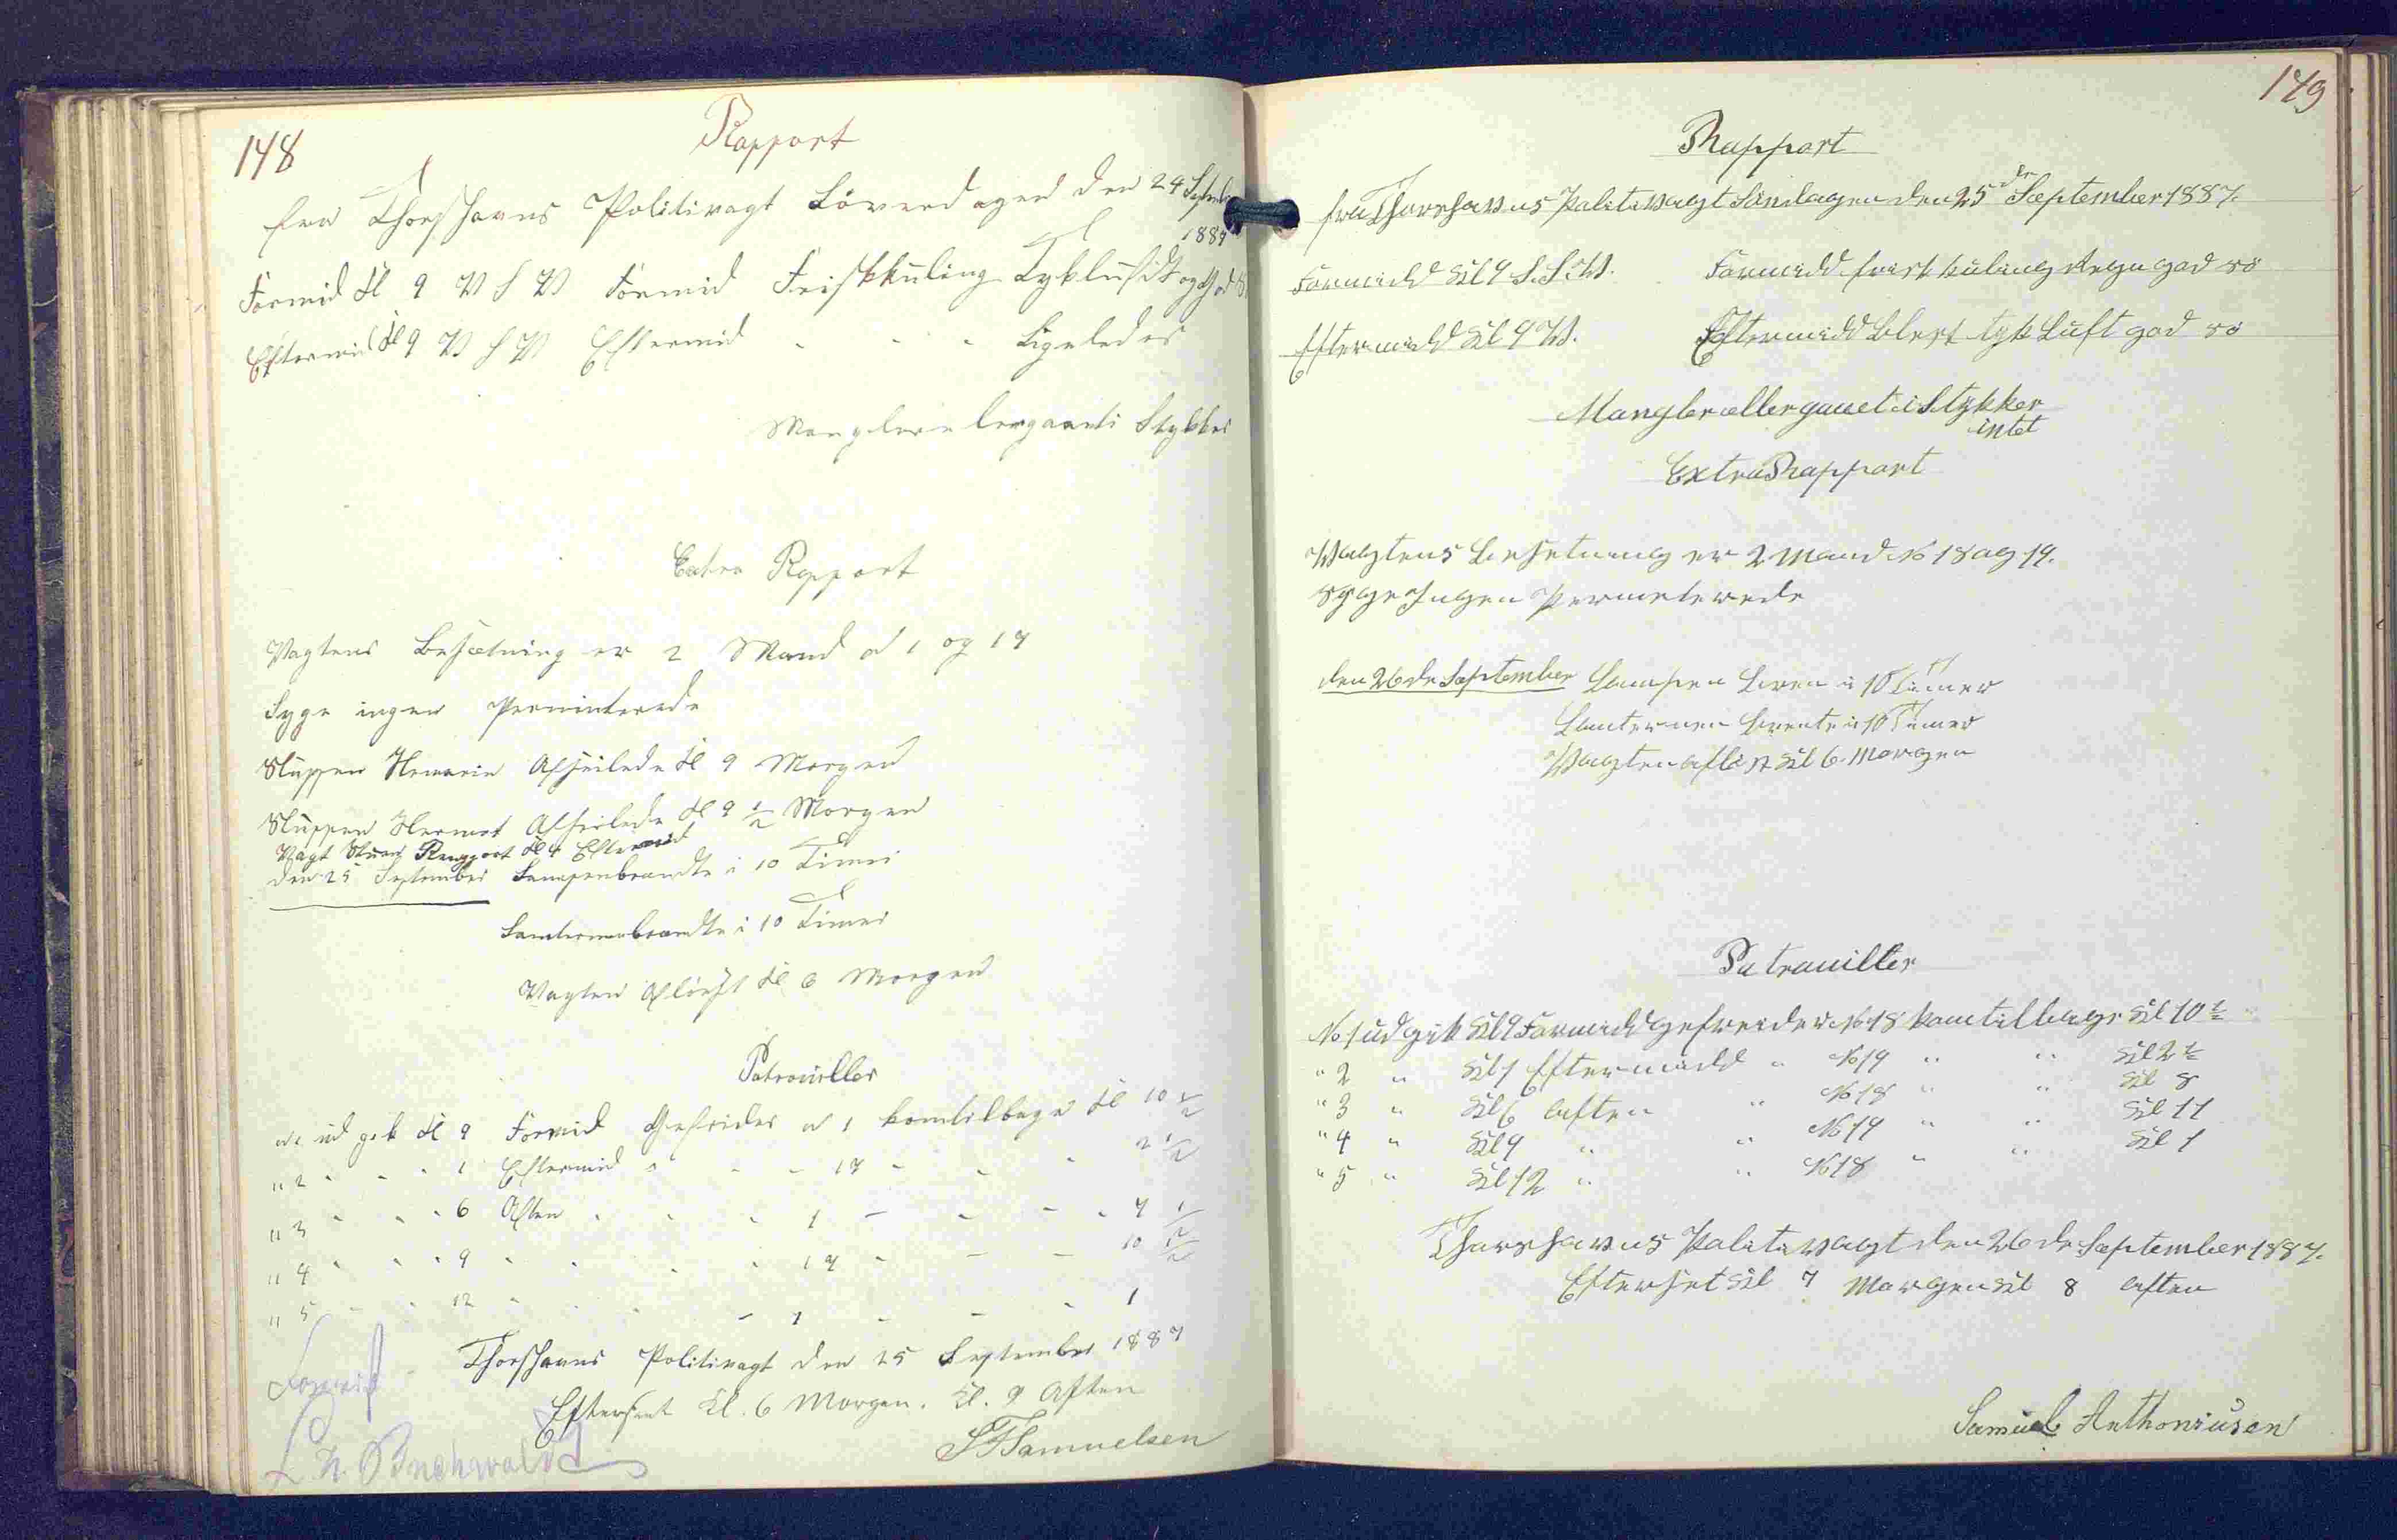 148
Rapport
fra Thorshavns Politivagt Löverdagen den 24 Septemb
1887
Formid Kl 9 V S V Formid Friskkuling Tykluft og God
Eftermid Kl 9 V S V Eftermid " " " Ligeledes
Mangler elergaaeti Stykker
Extra Rapport
Vagtens Besætning er 2 Mand N 1 og 17
Syge ingen Perminterede
Sluppen Afseilede Kl 9 Morgen
Sluppen Afseilede Kl 9 1/2 Morgen
Vagt Rapport Kl 4 Eftermid
Den 25 September Lampenbrandte i 10 Timer
Lanternenbrandte i 10 Timer
Vagten Aflöest Kl 6 Morgen
Patrouiller
N 1 ud gik Kl 9 Formid Gefreider N 1 komtilbage Kl 10 1/2
" 2 " " " 1 Eftermid " " " 17 " " " 2 1/2
" 3 " " " 6 Aften " " " 1 " " " " 7 1/2
" 4 " " " 9 " " " " 17 " " " 10 1/2
" 5 " " 12 " " " " 1 " " " 1
Thorshavns Politivagt den 25 September 1887
Efterseet Kl. 6 Morgen. Kl. 9 Aften
S F Samuelsen
Buchwald
149
Rapport
fra Thorshavns Politivagt Söndagen den 25de September 1887.
Formidd Kl 9 S.S.V. Formidd frisk kuling Regn god sö
Eftermidd Kl 9 V. Eftermidd blest tyk Luft god sö
Mangler eller gaaet i Stykker
intet
Extra Rapport
Vagtens besetning er 2 Mand No 18 og 19.
syge Ingen Permeterede
den 26de September Lampen bren i 10 Timer
Lanternen brente i 10 Timer
Vagten aflöst Kl 6. Morgen
Patrouiller
No 1 udgik Kl 9 Formidd gefreider No 18 kom tilbage Kl 10 1/2
" 2 " Kl 1 Eftermidd " No 19 " " Kl 2 1/2
" 3 " Kl 6 aften " No 18 " " Kl 8
" 4 " Kl 9 " " No 19 " " Kl 11
" 5 " Kl 12 " " No 18 " " Kl 1
Thorshavns Politivagt den 26de September 1887.
Efterset Kl 7 Morgen Kl 8 aften
Samuel Anthoniusen